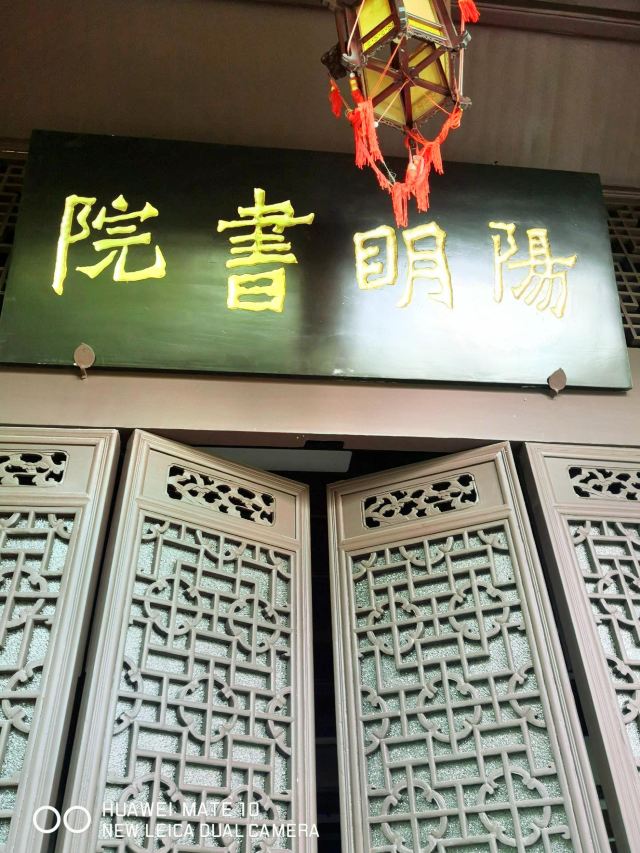 陽眀書院
HUAWEI MATE 10
NEW LEICA DUAL CAMERA